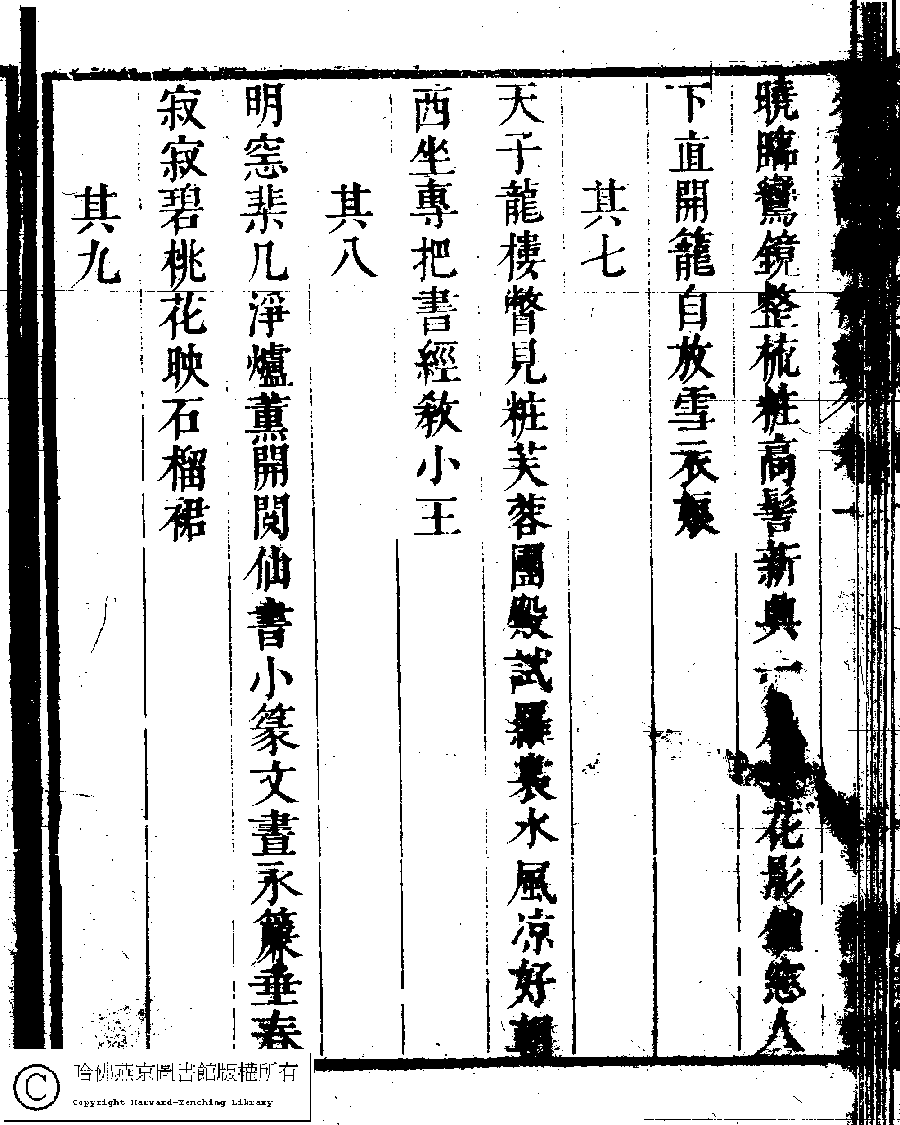 曉臨鸞鏡整梳粧高髻新興一花影窓人
下直開籠自放雪衣娘
其七
天子龍樓瞥見粧芙蓉團殿試羅裳水風凉好朝
西坐專把書經教小王
其八
明窓棐几淨爐薰開閱仙書小篆文晝永簾垂春
寂寂碧桃花映石榴裙
其九
哈佛燕京圖書館版權所有
Copyright Harvard-Yenching Library